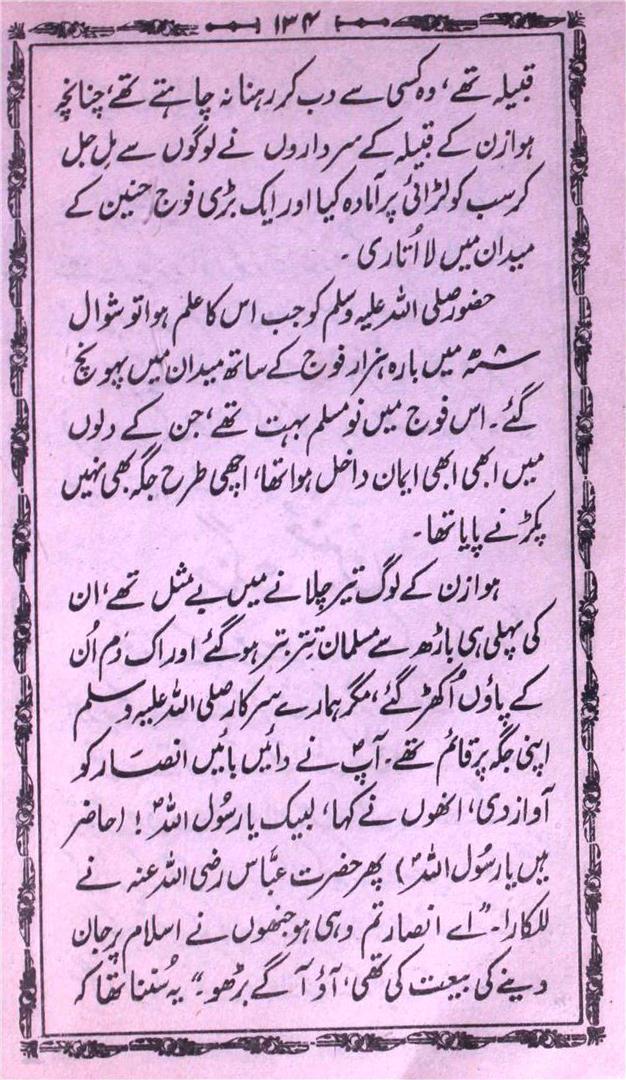 ۱۳۴
قبیلہ تھے، وہ کسی سے دب کر رہنا نہ چاہتے تھے، چنانچہ
ہوازن کے قبیلہ کے سرداروں نے لوگوں سے مل جل
کر سب کو لڑائی پر آمادہ کیا اور ایک بڑی فوج حنین کے
میدان میں لا اُتاری ۔
حضور صلی اللہ علیہ وسلم کو جب اس کا علم ہوا تو شوال
۸ھ میں بارہ ہزار فوج کے ساتھ میدان میں پہونچ
گئے۔ اس فوج میں نومسلم بہت تھے، جن کے دلوں
میں ابھی ابھی ایمان داخل ہوا تھا، اچھی طرح جگہ بھی نہیں
پکڑنے پایا تھا۔
ہوازن کے لوگ تیر چلانے میں بے مثل تھے، ان
کی پہلی ہی باڑھ سے مسلمان تتر بتر ہو گئے اور اک دَم اُن
کے پاؤں اُکھڑ گئے، مگر ہمارے سرکار صلی اللہ علیہ وسلم
اپنی جگہ پر قائم تھے۔ آپؐ نے دائیں بائیں انصار کو
آواز دی، انھوں نے کہا، لبیک یا رسُول اللہؐ ! (حاضر
ہیں یا رسُول اللہؐ) پھر حضرت عبّاس رضی اللہ عنہ نے
للکارا۔ "اے انصار تم وہی ہو جنھوں نے اسلام پر جان
دینے کی بیعت کی تھی، آؤ آگے بڑھو۔" یہ سُننا تھا کہ